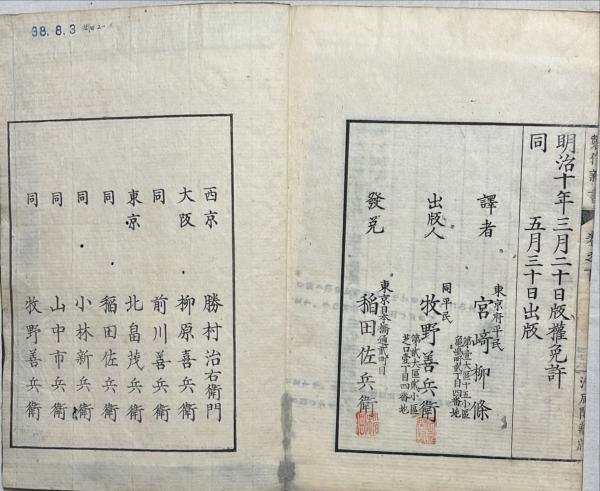 明治十年三月二十日版權免許
同 五月三十日出版
譯者
東京府平民
宮﨑柳條
第壹大區十五小區
出版人
同平民
牧野善兵衛
第貳大區貳小區
芝口壹丁目四番地
發兌
東京日本橋通貳町目
稲田佐兵衛
西京 勝村治右衛門
大阪 柳原喜兵衛
同 前川善兵衛
東京 北畠茂兵衛
同 稲田佐兵衛
同 小林新兵衛
同 山中市兵衛
同 牧野善兵衛
38.8.3